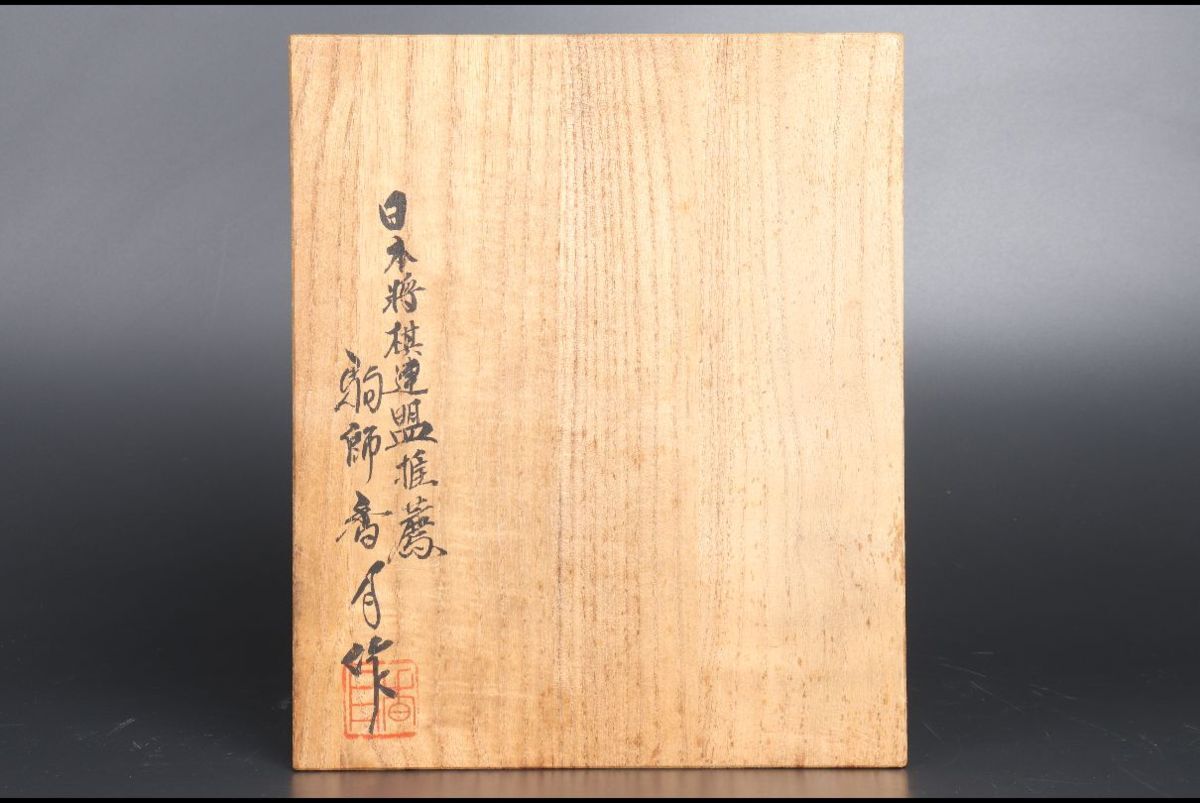 日本将棋連盟推薦
駒師香月作
香月